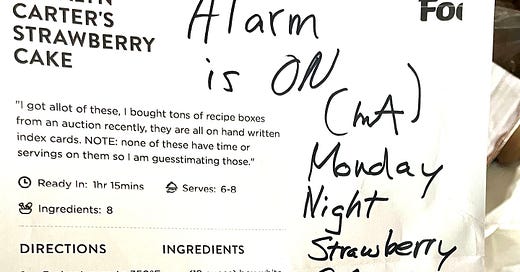 CARTER'S
STRAWBERRY
CAKE
"I got allot of these, I bought tons of recipe boxes
from an auction recently, they are all on hand written
index cards. NOTE: none of these have time or
servings on them so I am guesstimating those."
Ready In: 1hr 15mins
Serves: 6-8
Ingredients: 8
DIRECTIONS
INGREDIENTS
Alarm
is ON
Monday
Night
Strawberry